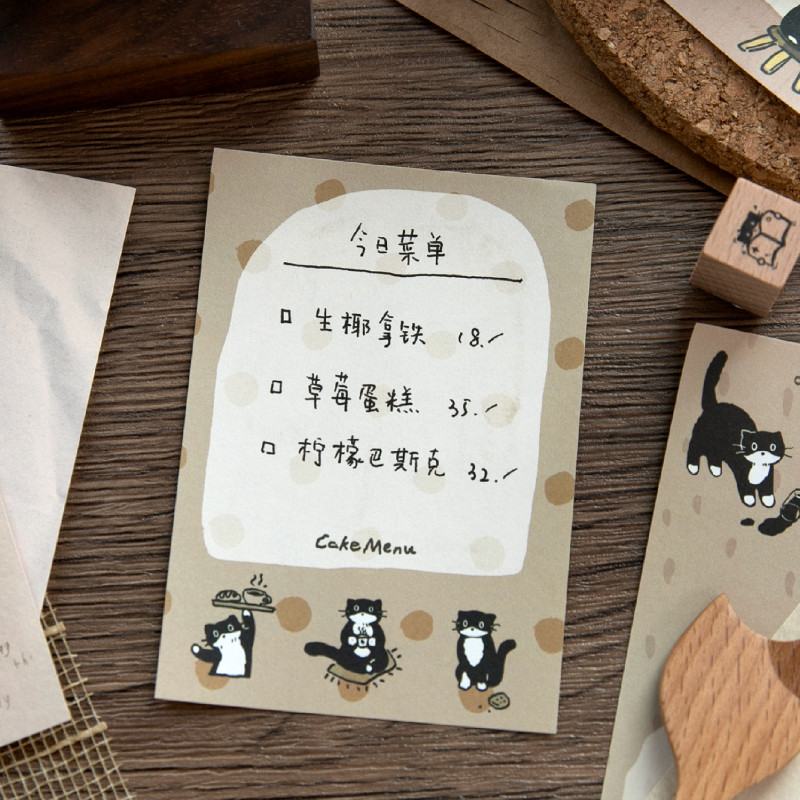 今日菜单
生椰拿铁 18.-
草莓蛋糕 35.-
柠檬巴斯克 32.-
Cake Menu